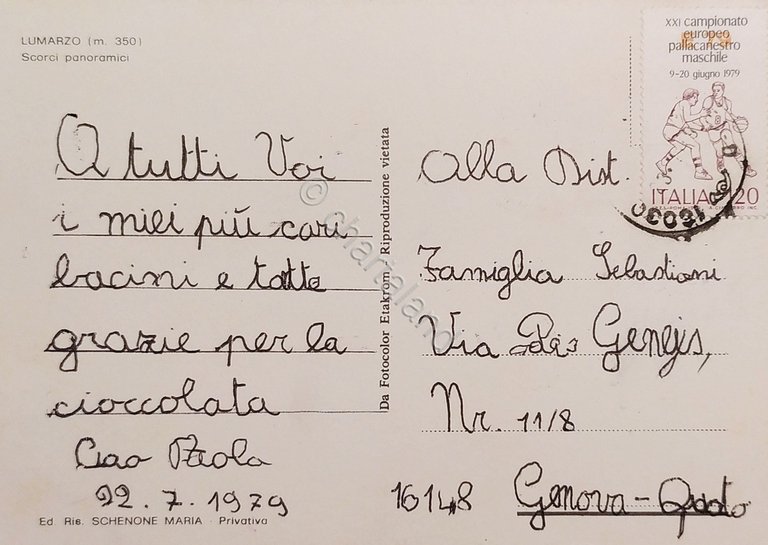 LUMARZO (m. 350)
Scorci panoramici
A tutti Voi
i miei più cari
bacini e tatte
grazie per la
cioccolata
Ciao Paola
22.7.1979
Ed. Ris. SCHENONE MARIA - Privativa
Da Fotocolor Etakrom - Riproduzione vietata
© chartaland
XXI campionato
europeo
pallacanestro
maschile
9-20 giugno 1979
ITALIA 120
16030
Alla Dist.
Famiglia Sebastiani
Via
Nr. 11/8
16148 Genova - Quarto